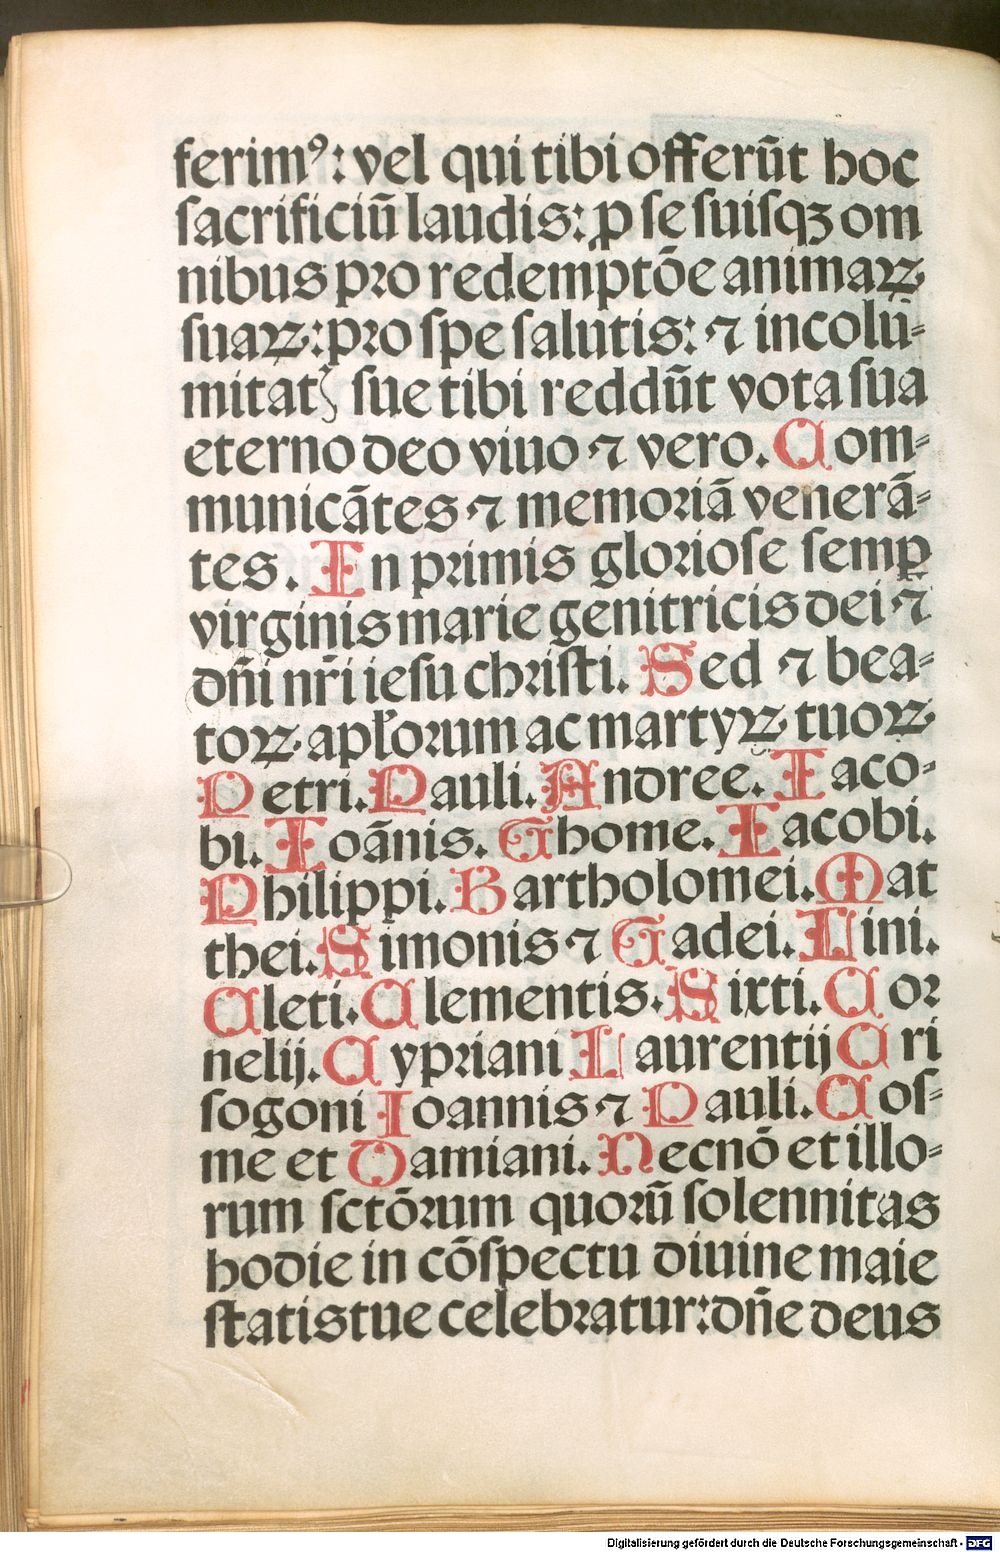 ferimꝰ: vel qui tibi offerūt hoc
sacrificiū laudis: ꝓ se suisqꝫ om
nibus pro redemptōe animaꝝ
suaꝝ: pro spe salutis: ⁊ incolu̅-
mitatꝭ sue tibi reddūt vota sua
eterno deo viuo ⁊ vero. Com-
municātes ⁊ memoriā venerā-
tes. In primis gloriose semꝑ
virginis marie genitricis dei ⁊
dn̄i nr̄i iesu christi. Sed ⁊ bea-
toꝝ apl'orum ac martyꝝ tuoꝝ
Petri. Pauli. Andree. Iaco-
bi. Ioānis. Thome. Iacobi.
Philippi. Bartholomei. Mat
thei. Simonis ⁊ Tadei. Lini.
Cleti. Clementis. Sixti. Cor
nelij. Cypriani Laurentij Cri
sogoni Ioannis ⁊ Pauli. Cos-
me et Damiani. Necnō et illo-
rum sctōrum quorū solennitas
hodie in cōspectu diuine maie
statis tue celebratur: dn̄e deus
Digitalisierung gefördert durch die Deutsche Forschungsgemeinschaft - DFG